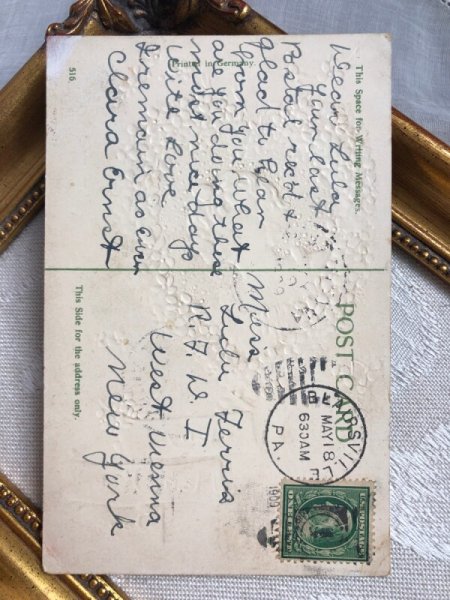 This Space for Writing Messages.
POST CARD
This Side for the address only.
Printed in Germany.
516.
Dear Lulu
Your last
Postal rec'd &
glad to hear
from you, What
are you doing these
most nice days
With Love
I remain as ever
Clara Ernst
Miss
Lulu Ferris
R.F.D. I
West Vienna
New York
MAY 18
630AM
PA.
1909
U.S. POSTAGE
ONE CENT